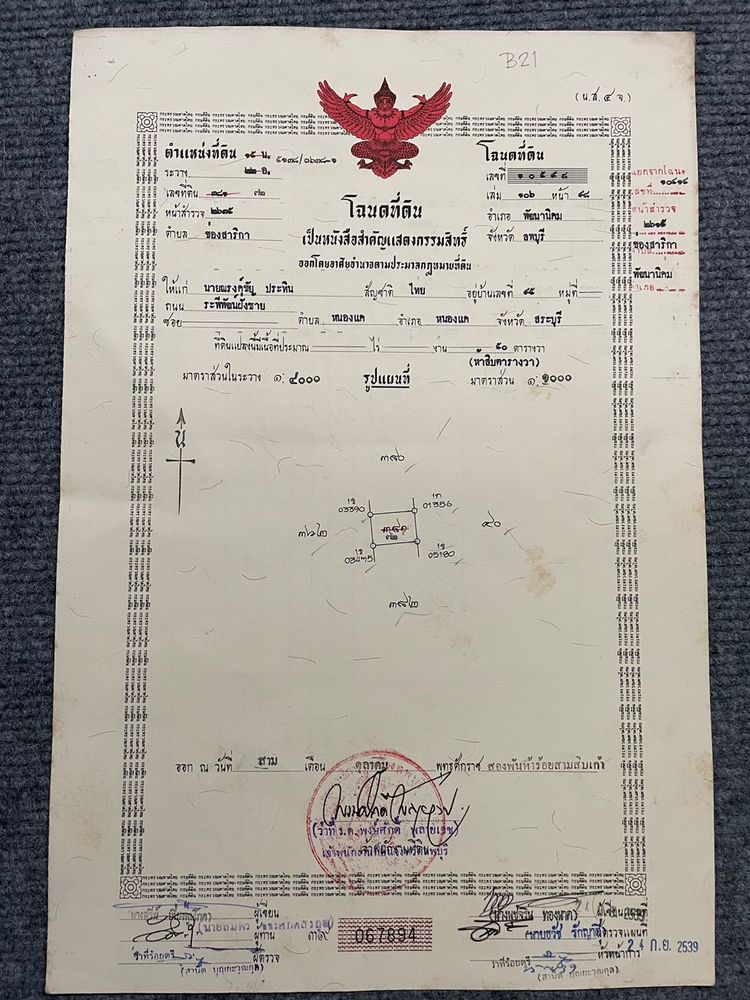 B21
(น.ส. ๔ จ.)
ตำแหน่งที่ดิน
ระวาง
เลขที่ดิน ๓๘๑ ๗๒
หน้าสำรวจ ๒๖๓๕
ตำบล ช่องสาริกา
โฉนดที่ดิน
เลขที่ ๑๐๕๙๘
เล่ม ๑๐๖ หน้า ๙๘
อำเภอ พัฒนานิคม
จังหวัด ลพบุรี
แยกจากโฉนด
เลขที่
หน้าสำรวจ
๒๖๑๕
ช่องสาริกา
พัฒนานิคม
อำเภอ
โฉนดที่ดิน
เป็นหนังสือสำคัญแสดงกรรมสิทธิ์
ออกโดยอาศัยอำนาจตามประมวลกฎหมายที่ดิน
ให้แก่ นายณรงค์ชัย ประทิน สัญชาติ ไทย อยู่บ้านเลขที่ ๔๕ หมู่ที่
ถนน ระพีพัฒน์ฝั่งซ้าย
ซอย ตำบล หนองแค อำเภอ หนองแค จังหวัด สระบุรี
ที่ดินแปลงนี้มีเนื้อที่ประมาณ ไร่ งาน ๕๐ ตารางวา
(ห้าสิบตารางวา)
มาตราส่วนในระวาง ๑: ๔๐๐๐ รูปแผนที่ มาตราส่วน ๑: ๑๐๐๐
น
๓๘๐
03390
01356
๓๘๑
๗๒
๓๖๒
๙๐
03475
05180
๓๘๒
ออก ณ วันที่ สาม เดือน ตุลาคม พุทธศักราช สองพันห้าร้อยสามสิบเก้า
(ว่าที่ ร.ต. พงษ์ศักดิ์ พลายเวช)
ผู้เขียน
ผู้ทาน
ผู้ตรวจ
ว่าที่ร้อยตรี
067894
ผู้เขียนแผนที่
ผู้ตรวจแผนที่
หัวหน้าการ
24 ก.ย. 2539
ว่าที่ร้อยตรี